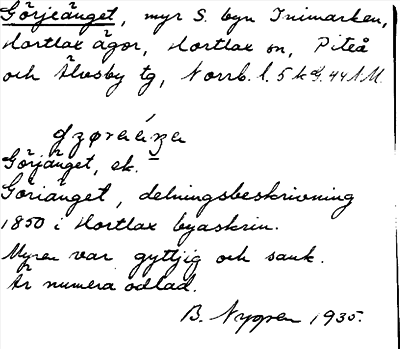 Görjeänget, myr S. byn Inimarken,
Hortlax ägor, Hortlax sn, Piteå
och Älvsby tg, Norrb. l. 5 k G. 44 N.M.
Görjänget, ek.
Göriänget, delningsbeskrivning
1850 i Hortlax byaskrin.
Myren var gyttjig och sank.
Är numera odlad.
B. Nygren 1935.